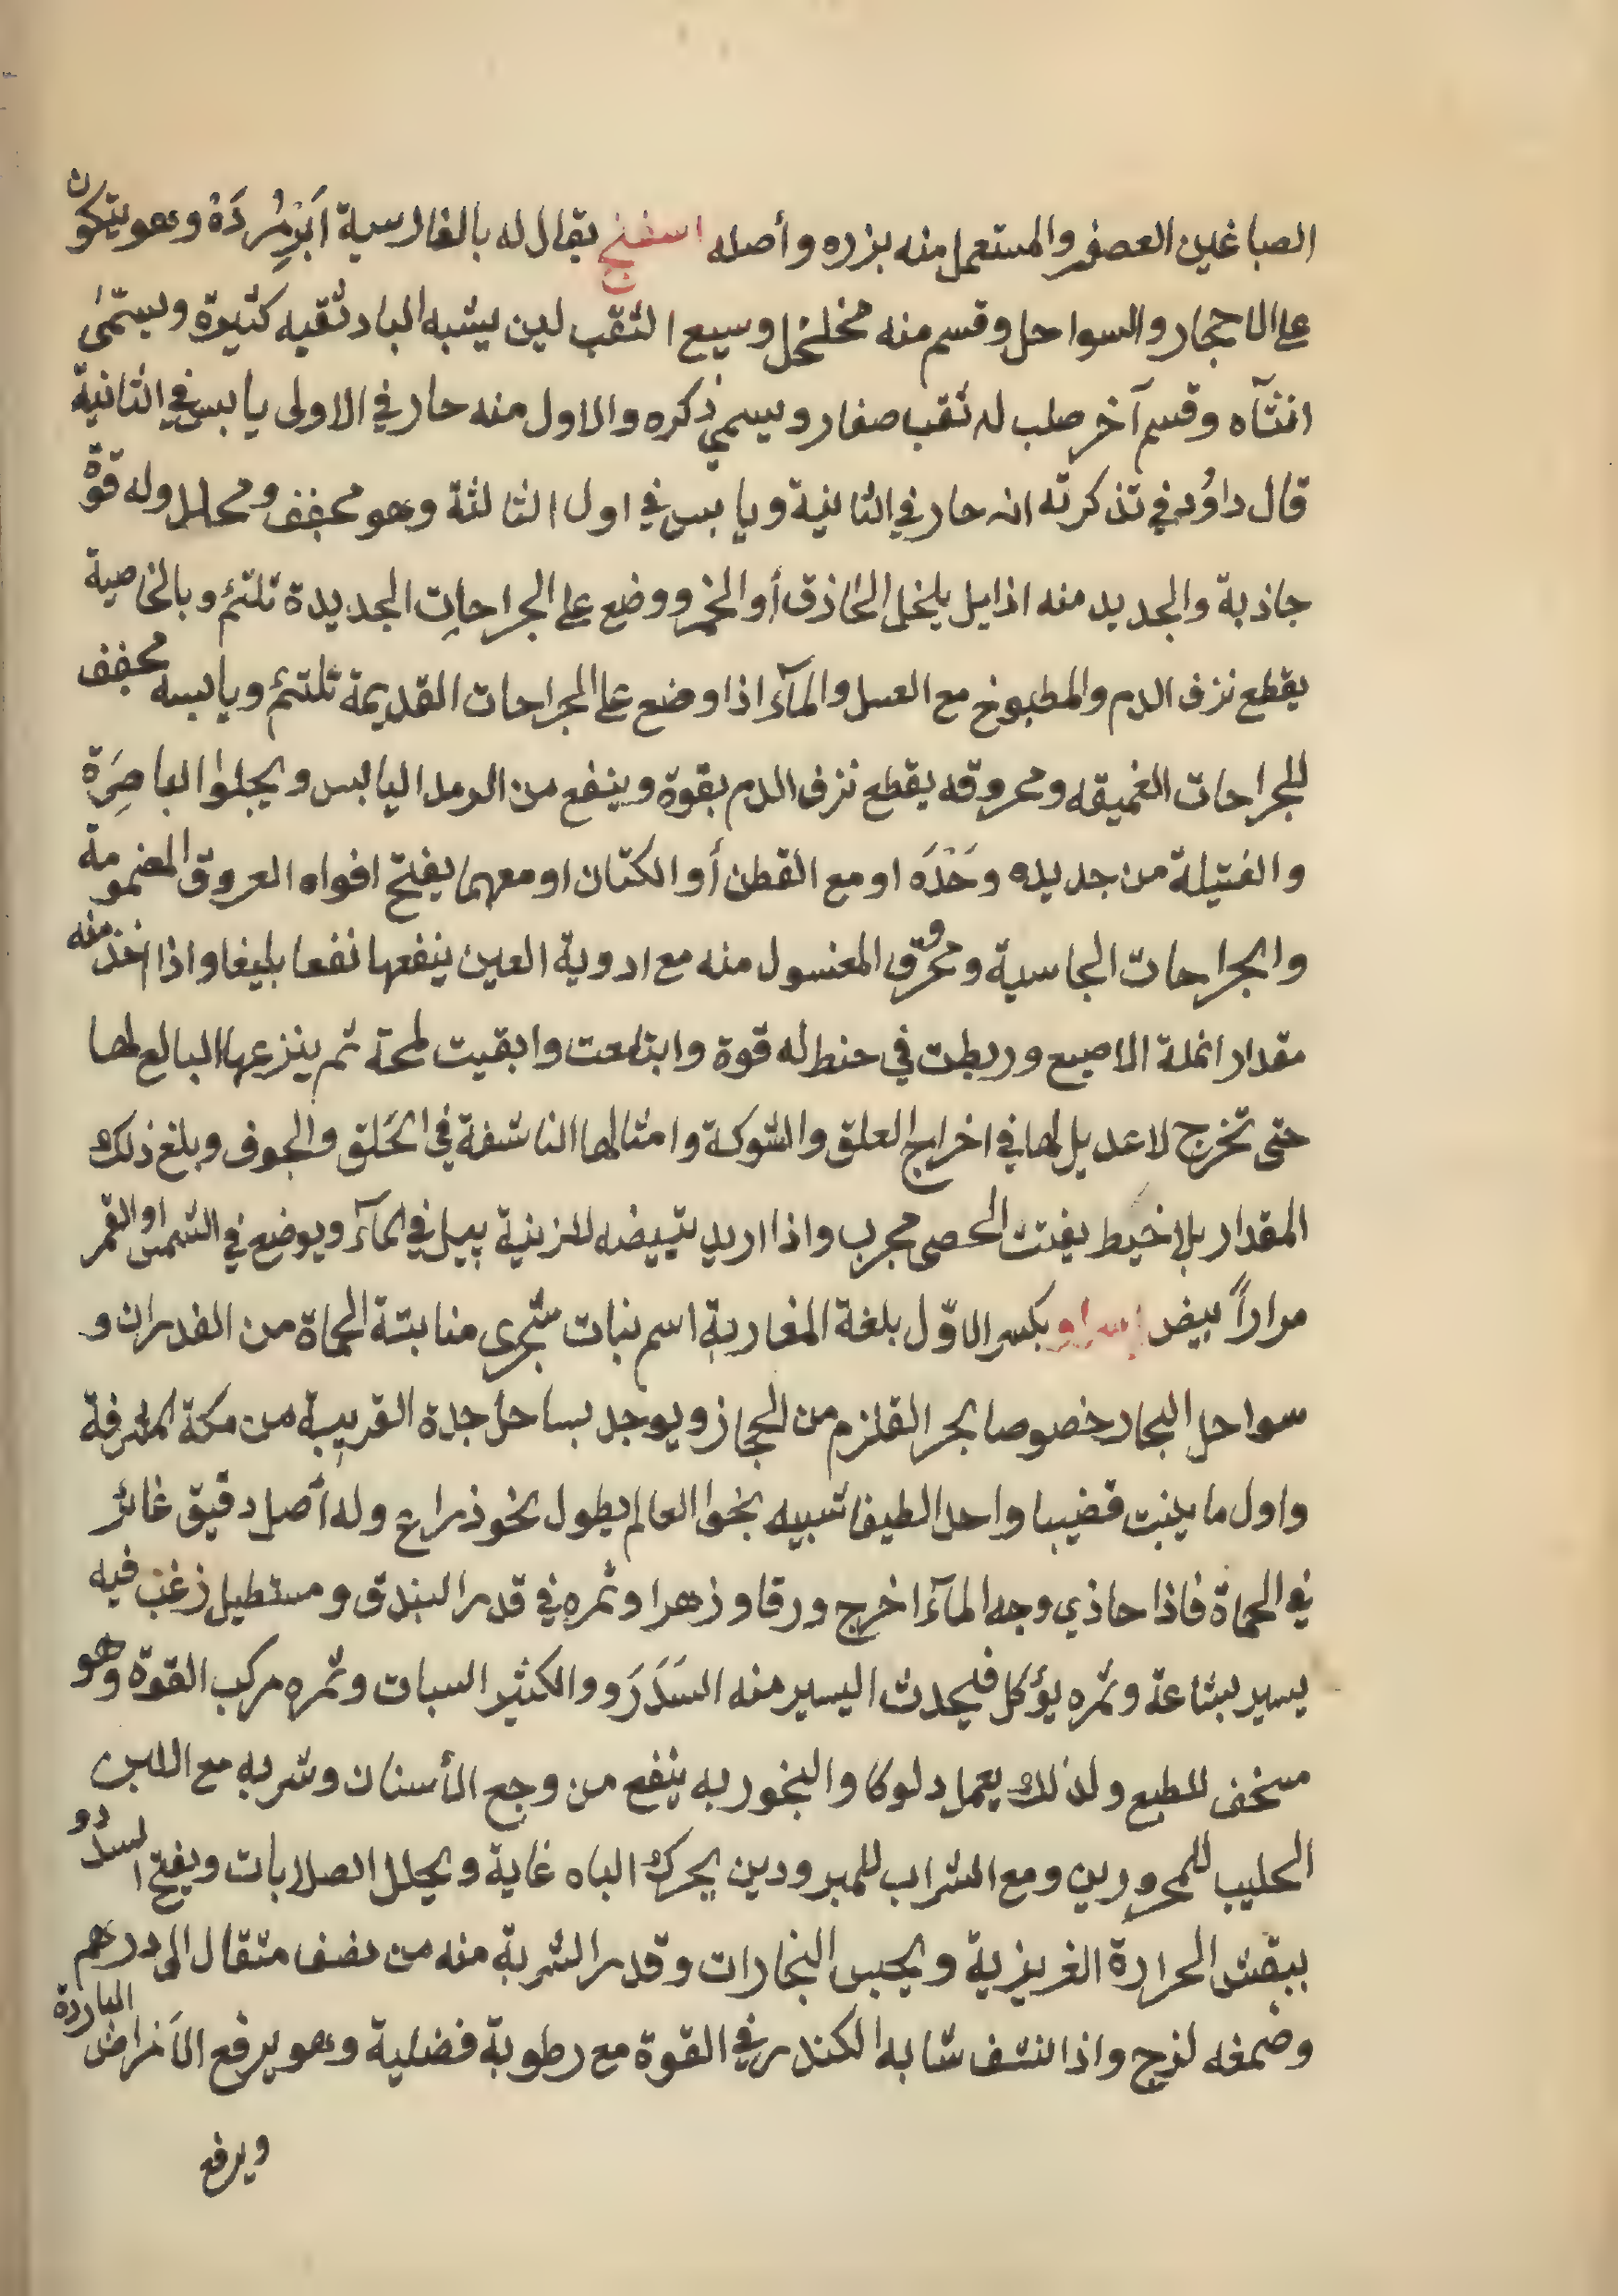 الصباغين العصفر والمستعمل منه بزره وأصله اسفنج يقال له بالفارسية ابرمرده وهو يتكون
على الاحجار والسواحل وقسم منه مخلخل وسيع الثقب لين يشبه الباد ثقبه كثيرة ويسمّى
انثآه وقسم آخر صلب له ثقب صغار ويسمي ذكره والاول منه حار في الاولى يابس في الثانية
قال داوُد في تذكرته انه حار في الثانية ويابس في اول الثالثة وهو مجفف ومحلل وله قوّة
جاذبة والجديد منه اذا بل بلخل الحاذق أو الخمر ووضع على الجراحات الجديدة تلتئم وبالخاصية
يقطع نزف الدم والمطبوخ مع العسل والمآء اذا وضع على الجراحات القديمة تلتئم ويابسه مجفف
للجراحات الغميقه ومحروقه يقطع نزف الدم بقوة وينفع من الرمد اليابس ويجلوا الباصِرَة
والفتيلة من جديده وَحْدَه او مع القطن أو الكتان او معهما يفتح افواه العروق المضمومة
والجراحات الجاسية ومحروق المغسول منه مع ادوية العين ينفعها نفعا بليغا واذا اخذ منه
مقدار انملة الاصبع وربطت في خيط له قوة وابتلعت وابقيت لمحة ثم ينزعها البالع لها
حتى تخرج لا عديل لها في اخراج العلق والشوكة وامثالها الناشفة في الحَلق والجوف وبلغ ذلك
المقدار بلا خيط يفتت الحصى مجرب واذا اريد تبييضه للزينة يبل في المآء ويوضع في الشمس او القمر
مراراً يبيض إسراو بكسر الاوّل بلغة المغاربة اسم نبات شجرى منابته الحماة من الغدران و
سواحل البحار خصوصا بحر القلزم من الحجاز ويوجد بساحل جدة القريبة من مكة المشرفة
واول ما ينبت قضيبا واحدا لطيفا شبيه بخوا العالم يطول نحو ذراع وله أصل دقيق غائر
في الحماة فاذا حاذي وجه المآء اخرج ورقا وزهرا وثمره في قدر البندق ومستطيل زغب فيه
يسير بشاعة وثمره يؤكل فيحدث اليسير منه السَدَرَ ووالكثير السبات وثمره مركب القوّة وهو
مسخف للطبع ولذلك يعمل دلوكا والبخور به ينفع من وجع الأسنان وشربه مع اللبن
الحليب للمحرورين ومع الشراب للمبرودين يحرك الباه غاية ويحلل الصلابات ويفتح السدد و
يبقش الحرارة الغريزية ويحبس البخارات وقدر الشربة منه من نصف مثقال الى درهم
وضمغه لزج واذا نشف شابه الكندر في القوة مع رطوبة فضلية وهو يرفع الأمراض الباردة
ويرفع